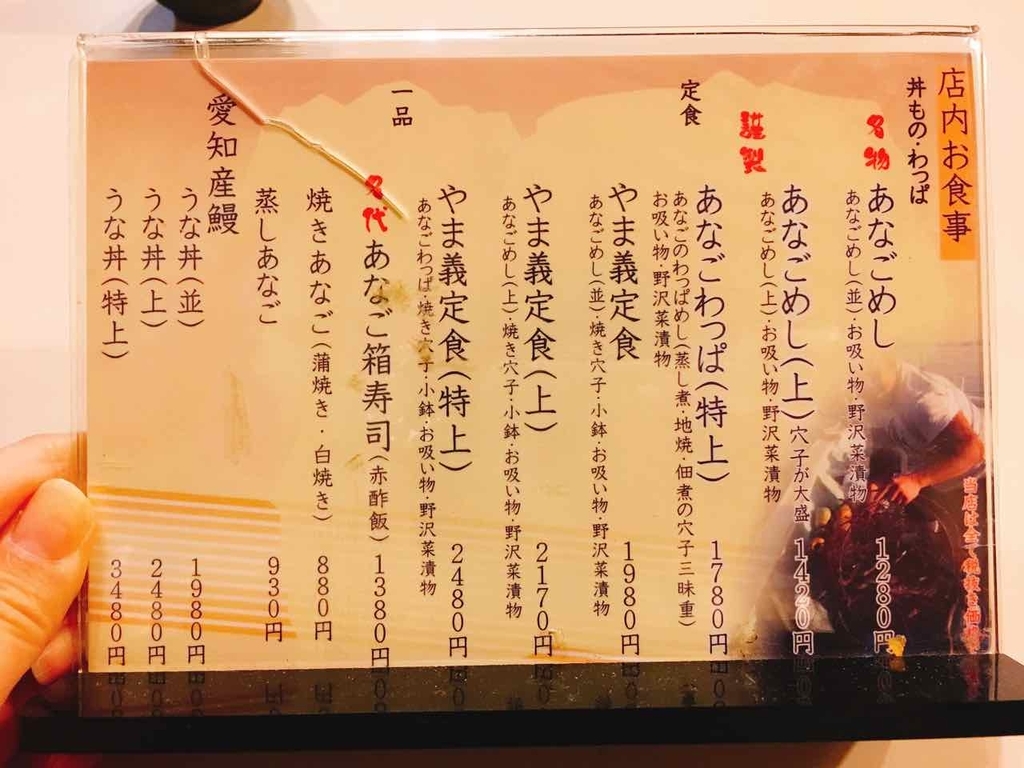 店内お食事
丼もの・わっぱ
名物
あなごめし
1280円
あなごめし(並)・お吸い物・野沢菜漬物
あなごめし(上)穴子が大盛
1420円
あなごめし(上)・お吸い物・野沢菜漬物
謹製
あなごわっぱ(特上)
1780円
あなごのわっぱめし(蒸し煮・地焼・佃煮の穴子三昧重)
お吸い物・野沢菜漬物
定食
やま義定食
1980円
あなごめし(並)・焼き穴子・小鉢・お吸い物・野沢菜漬物
やま義定食(上)
2170円
あなごめし(上)・焼き穴子・小鉢・お吸い物・野沢菜漬物
やま義定食(特上)
2480円
あなごわっぱ・焼き穴子・小鉢・お吸い物・野沢菜漬物
一品
名代
あなご箱寿司(赤酢飯)
1380円
焼きあなご(蒲焼き・白焼き)
880円
蒸しあなご
930円
愛知産鰻
うな丼(並)
1980円
うな丼(上)
2480円
うな丼(特上)
3480円
当店は全て